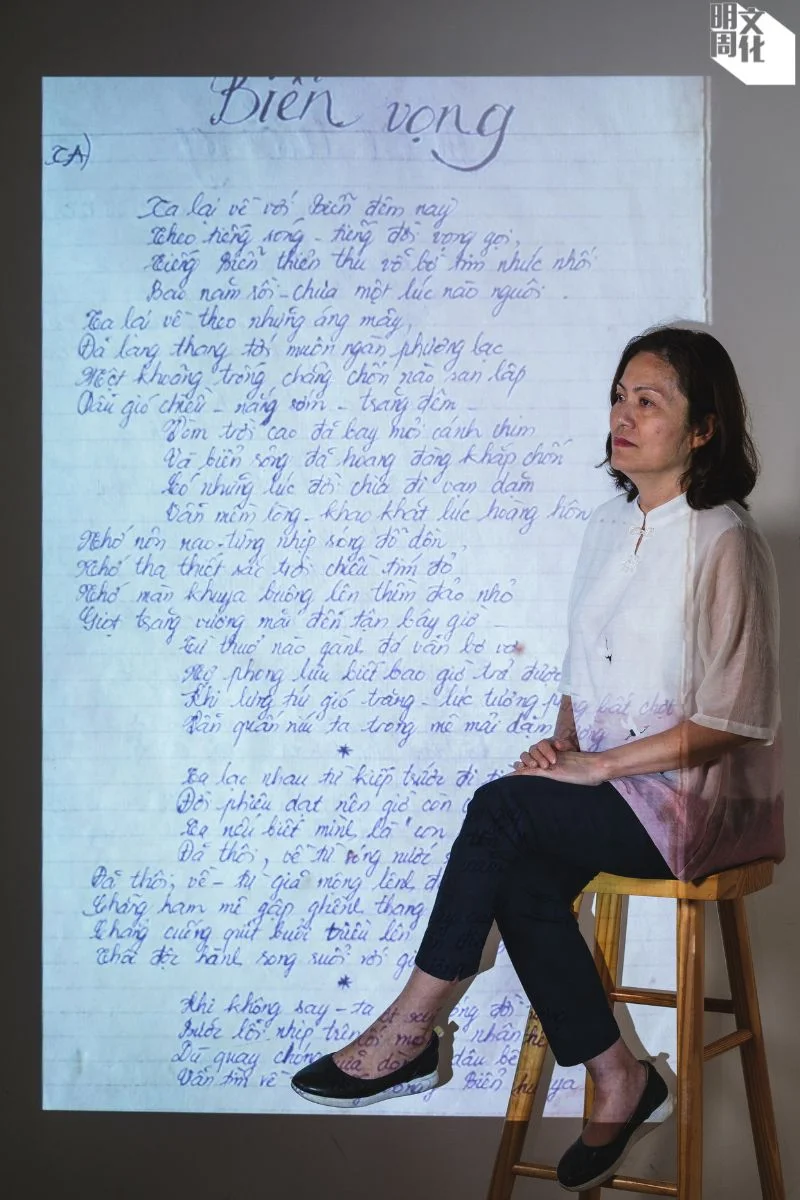 明周文化
Biển vọng
Ta lại về với Biển đêm nay
Theo tiếng sóng - tiếng đời vọng gọi,
Tiếng Biển thiên thu vỗ bờ tim nhức nhối
Bao năm rồi - chưa một lúc nào nguôi.
Ta lại về theo những áng mây,
Đã lang thang tới muôn ngàn phương lạc
Một khoảng trống chẳng chốn nào san lấp
Dẫu gió chiều - nắng sớm - trăng đêm -
Vòm trời cao đã bay mỏi cánh chim
Và biển sóng đã hoang đàng khắp chốn
Có những lúc đời chia đi vạn dặm
Vẫn mềm lòng - khao khát lúc hoàng hôn
Nhớ nôn nao - từng nhịp sóng dồ dồn,
Nhớ tha thiết sắc trời chiều tím đỏ
Nhớ màn khuya buông lên thềm đảo nhỏ
Giọt trăng vương mãi đến tận bây giờ -
Từ thuở nào gành đá vẫn bơ vơ
Nợ phong lưu biết bao giờ trả được
Khi lưng túi gió trăng - lúc tưởng bất chợt
Vẫn quấn níu ta trong mê mải dặm
*
Ta lạc nhau từ kiếp trước đi
Đời phiêu dạt nên giờ con
Ta nếu biết mình là con
Đã thôi, về từ sóng nước
Đã thôi, về - từ giã mộng lênh đ
Chẳng ham mê gập ghềnh thang
Chẳng cuống quít buổi triều lên
Thôi độc hành song suối với gi
*
Khi không say - ta sóng
Bước lỗi nhịp trên nhân
Dù quay dâu bể
Vẫn tìm về Biển